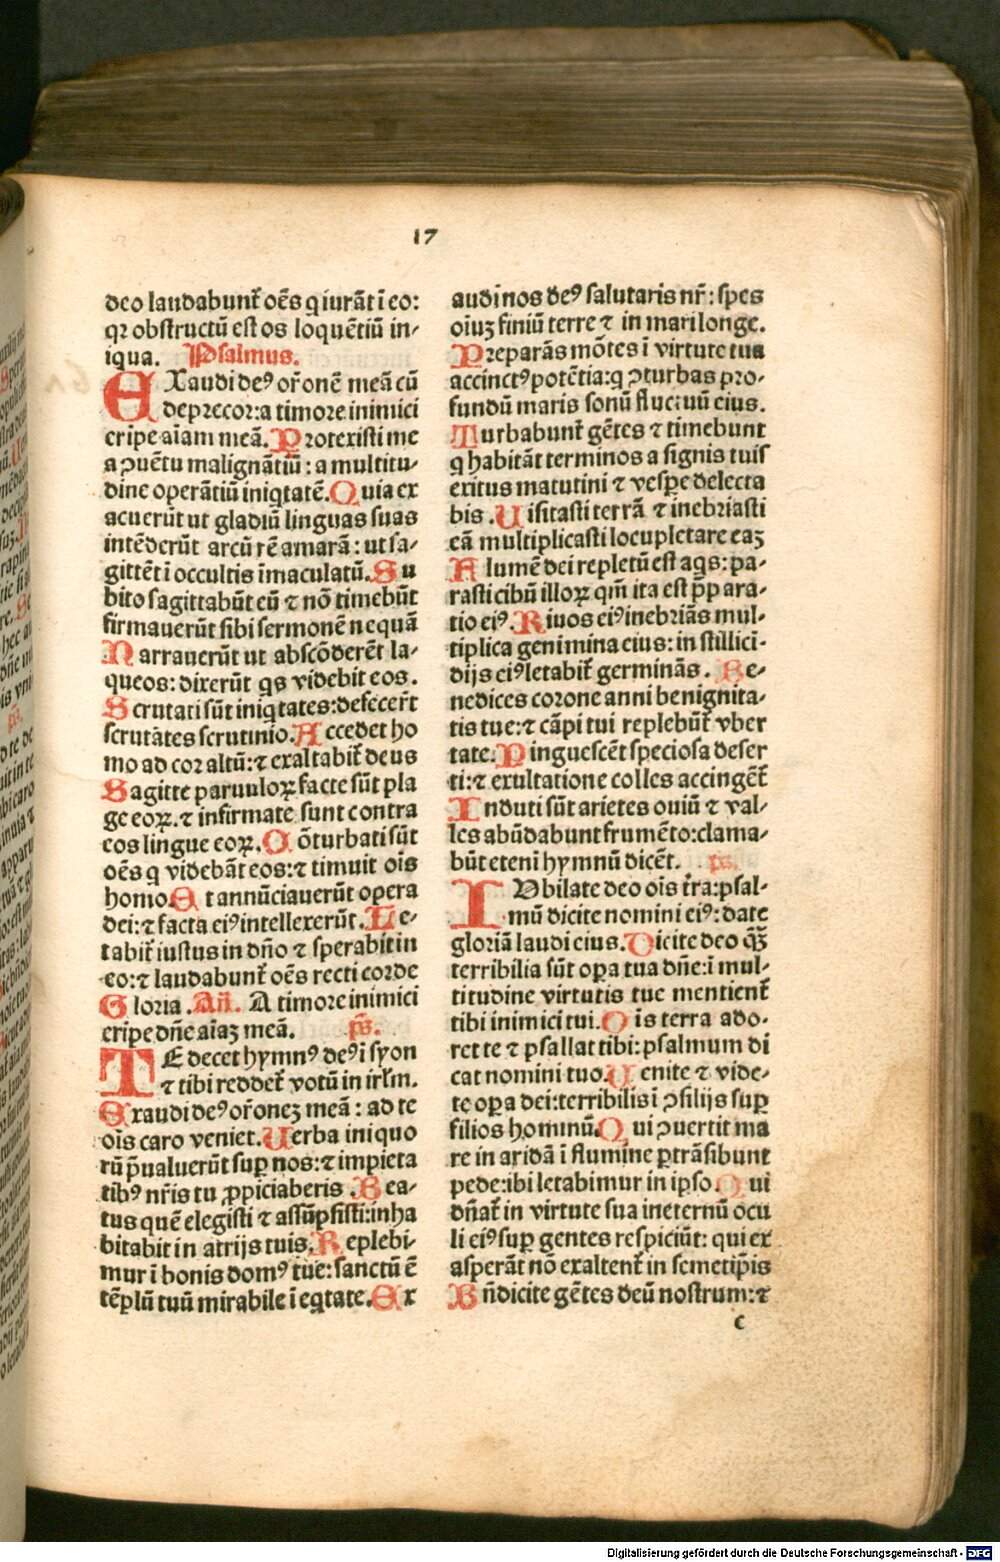 17
deo laudabunt᷑ oēs q iurāt ī eo:
qꝛ obstructū est os loquētiū in-
iqua. Psalmus.
EXaudi deꝰ or̄onē meā cū
deprecor: a timore inimici
eripe aīam meā. Protexisti me
a ꝯuētu malignātiū: a multitu-
dine operātiū iniqtatē. Quia ex
acuerūt ut gladiū linguas suas
intēderūt arcū rē amarā: ut sa-
gittēt ī occultis īmaculatū. Su
bito sagittabūt eū ⁊ nō timebūt
firmauerūt sibi sermonē nequā
Narrauerūt ut abscōderēt la-
queos: dixerūt qs videbit eos.
Scrutati sūt iniqtates: defecer̄t
scrutātes scrutinio. Accedet ho
mo ad cor altū: ⁊ exaltabit᷑ deus
Sagitte paruuloꝝ facte sūt pla
ge eoꝝ. ⁊ infirmate sunt contra
eos lingue eoꝝ. Cōturbati sūt
oēs q videbāt eos: ⁊ timuit oīs
homo. Et annūciauerūt opera
dei: ⁊ facta eiꝰ intellexerūt. Le-
tabit᷑ iustus in dn̄o ⁊ sperabit in
eo: ⁊ laudabunt᷑ oēs recti corde
Gloria. An̄. A timore inimici
eripe dn̄e aīaꝫ meā. ps̄.
TE decet hymnꝰ deꝰ ī syon
⁊ tibi reddet᷑ votū in irl̄m.
Exaudi deꝰ or̄oneꝫ meā: ad te
oīs caro veniet. Uerba iniquo
rū p̄ualuerūt suꝑ nos: ⁊ impieta
tibꝰ nr̄is tu ꝓpiciaberis. Bea-
tus quē elegisti ⁊ assūpsisti: inha
bitabit in atrijs tuis. Replebi-
mur ī bonis domꝰ tue: sanctū ē
tēplū tuū mirabile ī eqtate. Ex
audi nos deꝰ salutaris nr̄: spes
oīuꝫ finiū terre ⁊ in mari longe.
Preparās mōtes ī virtute tua
accinctꝰ potētia: q ꝯturbas pro-
fundū maris sonū fluctuū eius.
Turbabunt᷑ gētes ⁊ timebunt
q habitāt terminos a signis tuis
exitus matutini ⁊ vesꝑe delecta
bis. Uisitasti terrā ⁊ inebriasti
eā multiplicasti locupletare eaꝫ
Flumē dei repletū est aqs: pa-
rasti cibū illoꝝ qm̄ ita est p̄para-
tio eiꝰ. Riuos eiꝰ inebriās mul-
tiplica genimina eius: in stillici-
dijs eiꝰ letabit᷑ germinās. Be-
nedices corone anni benignita-
tis tue: ⁊ cāpi tui replebūt᷑ vber
tate. Pinguescēt speciosa deser
ti: ⁊ exultatione colles accingēt᷑
Induti sūt arietes ouiū ⁊ val-
les abūdabunt frumēto: clama-
būt etenī hymnū dicēt. ps̄.
IVbilate deo oīs tr̄a: psal-
mū dicite nomini eiꝰ: date
gloriā laudi eius. Dicite deo q̄ꝫ
terribilia sūt oꝑa tua dn̄e: ī mul-
titudine virtutis tue mentient᷑
tibi inimici tui. Oīs terra ado-
ret te ⁊ psallat tibi: psalmum di
cat nomini tuo. Uenite ⁊ vide-
te oꝑa dei: terribilis ī ꝯsilijs suꝑ
filios hominū. Qui ꝯuertit ma
re in aridā ī flumine ꝑtrāsibunt
pede: ibi letabimur in ipso. Qui
dn̄at᷑ in virtute sua in eternū ocu
li eiꝰ suꝑ gentes respiciūt: qui ex
asperāt nō exaltent᷑ in semetip̄is
Bn̄dicite gētes deū nostrum: ⁊
c
Digitalisierung gefördert durch die Deutsche Forschungsgemeinschaft - DFG